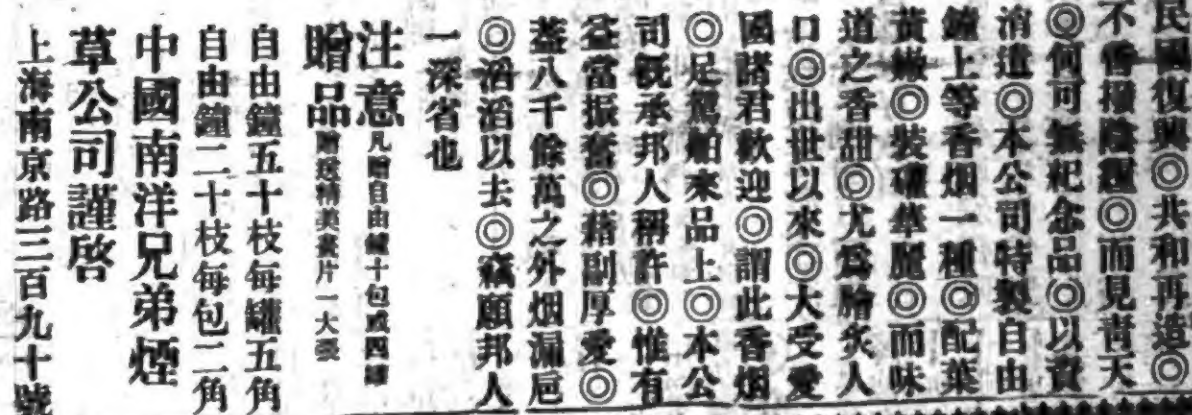 民國復興◎共和再造◎
不啻撥陰霾◎而見青天
◎何可無紀念品◎以資
消遣◎本公司特製自由
鐘上等香烟一種◎配葉
黃嫩◎裝璜華麗◎而味
道之香甜◎尤爲膾炙人
口◎出世以來◎大受愛
國諸君歡迎◎謂此香烟
◎足駕舶來品上◎本公
司既承邦人稱許◎惟有
益當振奮◎藉副厚愛◎
蓋八千餘萬之外烟漏巵
◎滔滔以去◎竊願邦人
一深省也
注意凡贈自由鐘十包或四罐
贈品贈送精美畫片一大張
自由鐘五十枝每罐五角
自由鐘二十枝每包二角
中國南洋兄弟煙
草公司謹啓
上海南京路三百九十號